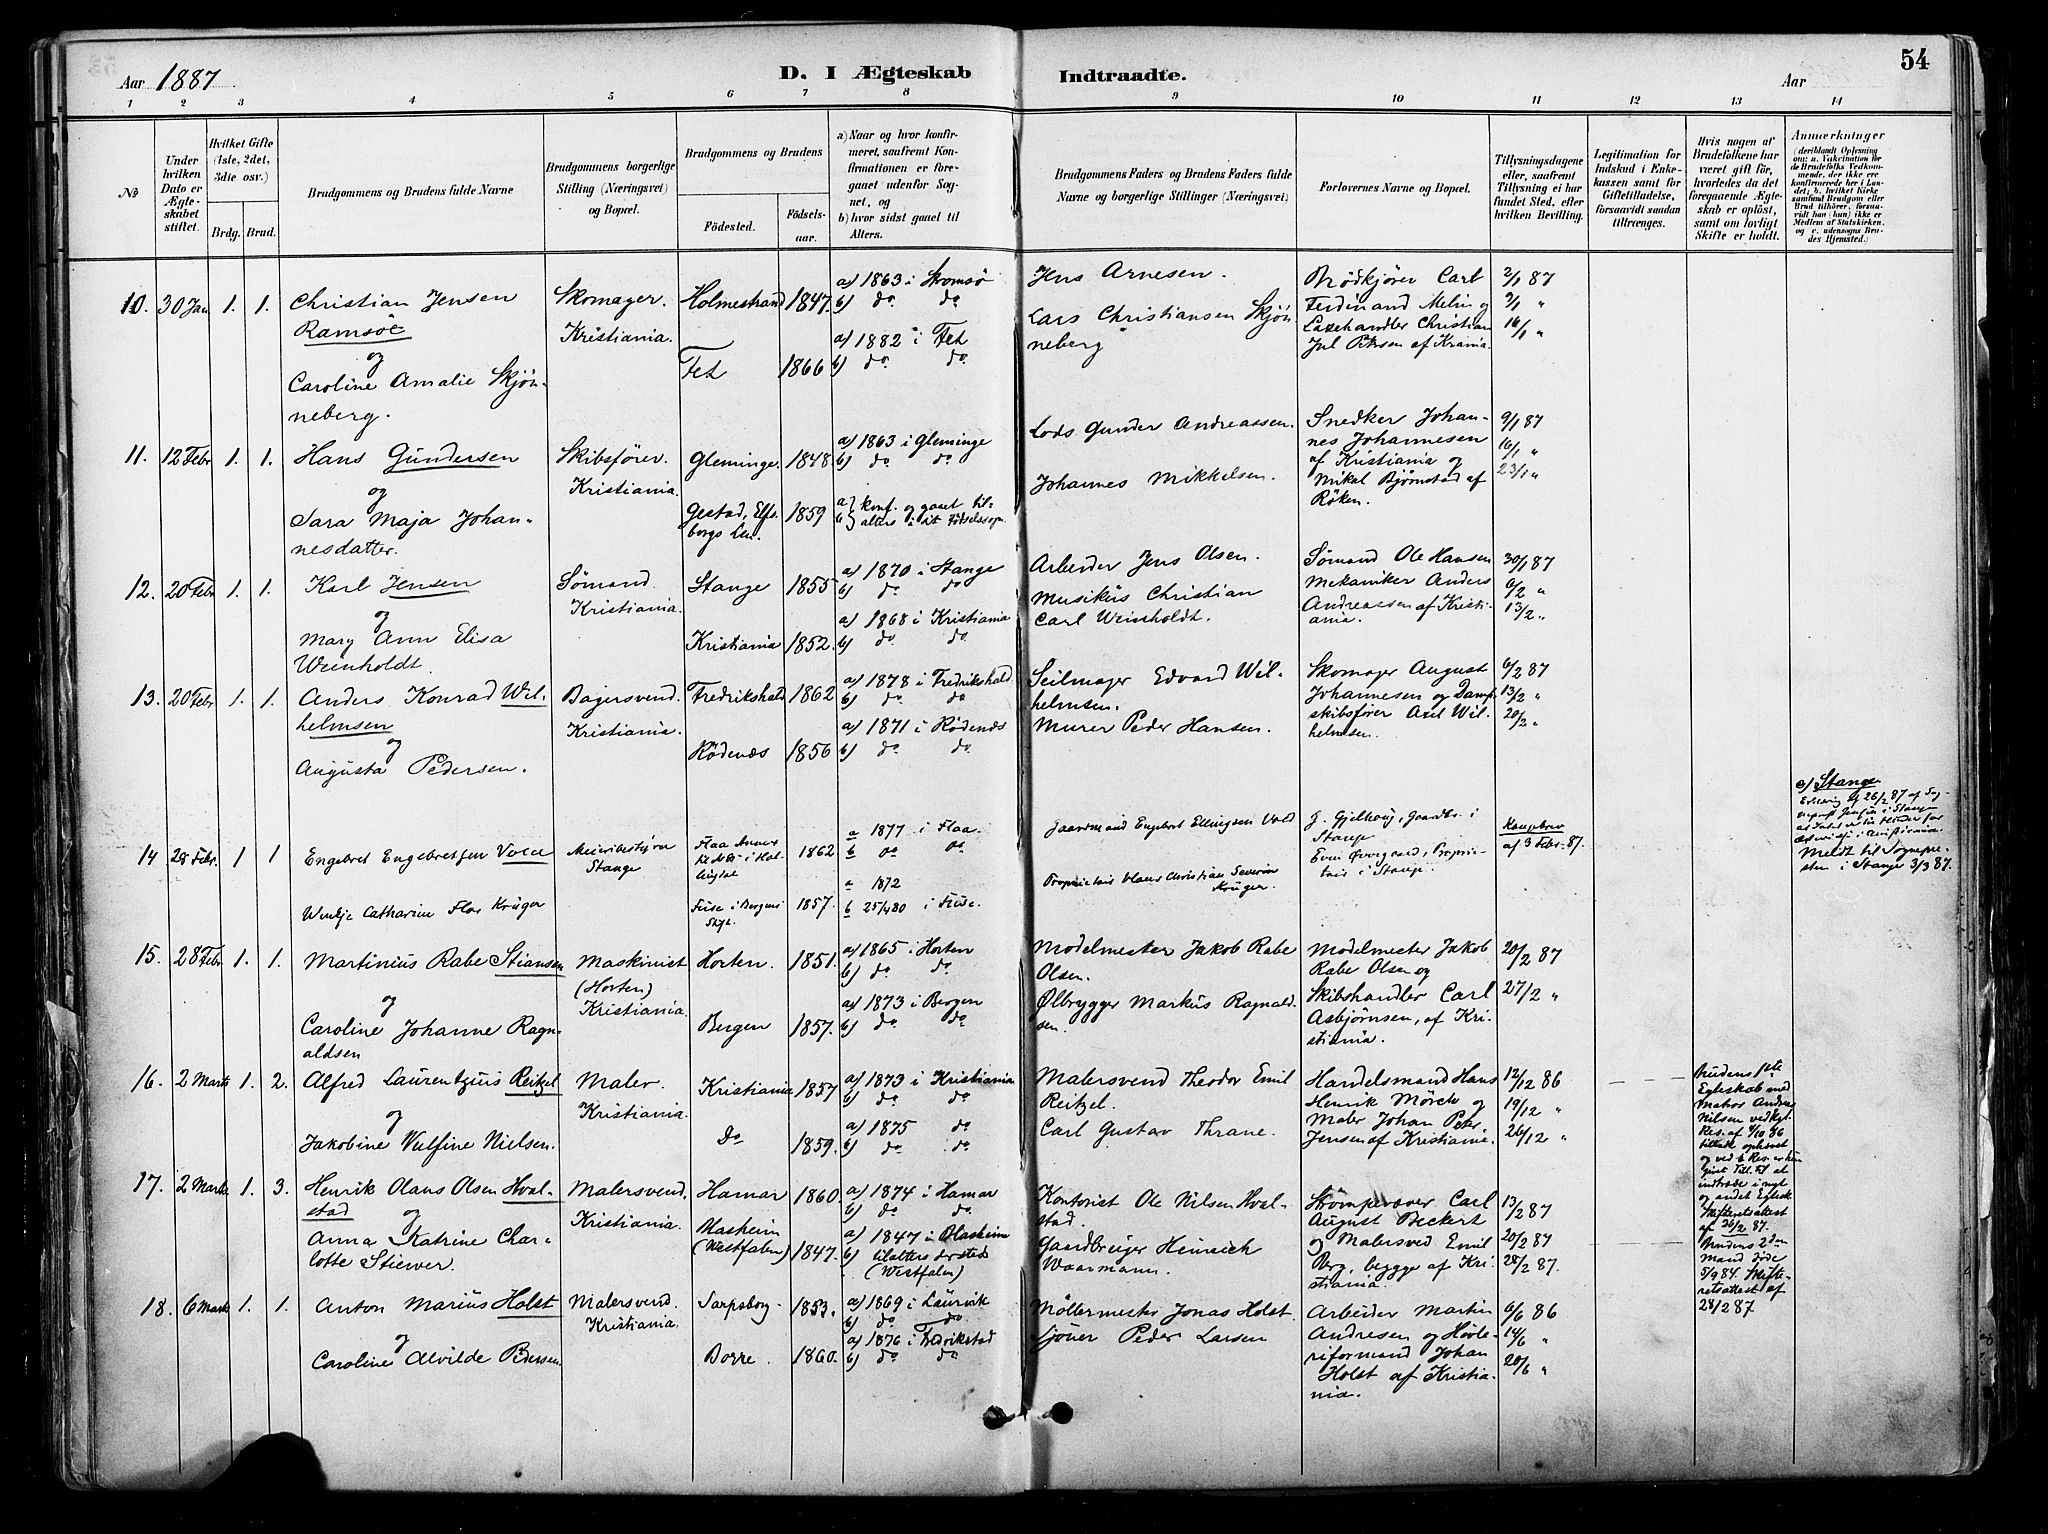 Aar 1887.
D. I Ægteskab Indtraadte.
Aar
54
1 2 3 4 5 6 7 8 9 10 11 12 13 14
No
Under hvilken Dato er Ægteskabet stiftet.
Hvilket Gifte (1ste, 2det, 3die osv.)
Brdg. Brud.
Brudgommens og Brudens fulde Navne
Brudgommens borgerlige Stilling (Næringsvei) og Bopæl.
Brudgommens og Brudens
Fødested. Fødselsaar.
a) Naar og hvor konfirmeret, saafremt Konfirmationen er foregaaet udenfor Sognet, og
b) hvor sidst gaaet til Alters.
Brudgommens Faders og Brudens Faders fulde Navne og borgerlige Stillinger (Næringsvei)
Forlovernes Navne og Bopæl.
Tillysningsdagene eller, saafremt Tillysning ei har fundet Sted, efter hvilken Bevilling.
Legitimation for Indskud i Enkekassen samt for Giftetilladelse, forsaavidt saadan tiltrænges.
Hvis nogen af Brudefolkene har været gift før, hvorledes da det foregaaende Ægteskab er opløst, samt om lovligt Skifte er holdt.
Anmærkninger (deriblandt Oplysning om: a. Vakcination for de Brudefolks Vedkommende, der ikke ere konfirmerede her i Landet; b. hvilket Kirkesamfund Brudgom eller Brud tilhører, forsaavidt han (hun) ikke er Medlem af Statskirken, og c. udensogns Brudes Hjemsted.)
10. 30 Jan 1. 1. Christian Jensen Ramsöe
og
Caroline Amalie Skjönneberg.
Skomager. Kristiania.
Holmestrand 1847.
Fet 1866
a) 1863 i Stromsö
b) do do
a) 1882 i Fet
b) do do
Jens Arnesen.
Lars Christiansen Skjönneberg
Brödkjörer Carl Ferdinand Melin og Laxehandler Christian Jul Petersen af Krania.
2/1 87
9/1 "
16/1 "
11. 12 Febr 1. 1. Hans Gundersen
og
Sara Maja Johannesdatter.
Skibsförer. Kristiania.
Gleminge. 1848
Gestad, Elfsborgs Len. 1859
a) 1863 i Gleminge
b) do do
a} b} konf. og gaaet til alters i sit Fødselssogn.
Lods Gunder Andreassen.
Johannes Mikkelsen.
Snedker Johannes Johannesen af Kristiania og Mikal Bjørnstad af Röken.
9/1 87
16/1 "
23/1 "
12. 20 Febr 1. 1. Karl Jensen
og
Mary Ann Elisa Weinholdt.
Sömand. Kristiania.
Stange 1855
Kristiania 1852.
a) 1870 i Stange
b) do do
a) 1868 i Kristiania
b) do do
Arbeider Jens Olsen.
Musikus Christian Carl Weinholdt.
Sömand Ole Hansen Mekaniker Anders Andreassen af Kristiania.
30/1 87
6/2 "
13/2 "
13. 20 Febr 1. 1. Anders Konrad Wilhelmsen
og
Augusta Pedersen.
Bagersvend Kristiania.
Fredrikshald 1862
Rödenæs 1856
a) 1878 i Fredrikshald
b) do do
a) 1871 i Rödenæs
b) do do
Seilmager Edvard Wilhelmsen.
Murer Peder Hansen.
Skomager August Johannesen og Dampskibsförer Axel Wilhelmsen.
6/2 87
13/2 "
20/2 "
14 28 Febr. 1 1 Engebret Engebretsen Vold
Wenkje Catharine Flor Krüger
Meieribestyrer Stange
Flaa 1862
1857.
a 1877 i Flaa.
b do do
a 1872
b 25/4 80 i
Gaardmand Engebret Ellingsen Vold
Proprietair Claus Christian Severin Krüger.
G. Gjelhoug, Gaardbr. i Stange
Even Øvergaard, Proprietair i Stange.
Kongebrev af 3 Febr. 87.
c) Stange
Meldt til Sognepresten i Stange 3/3 87.
15. 28 Febr 1. 1. Martinius Rabe Stiansen
og
Caroline Johanne Ragnaldsen
Maskinist (Horten) Kristiania.
Horten. 1851.
Bergen 1857.
a) 1865 i Horten
b) do do
a) 1873 i Bergen
b) do do
Modelmester Jakob Rabe Olsen.
Ølbrygger Markus Ragnaldsen.
Modelmester Jakob Rabe Olsen og Skibshandler Carl Asbjørnsen, af Kristiania.
20/2 87
27/2 "
16. 2 Marts 1. 2. Alfred Laurentzius Reitzel
og
Jakobine Valfine Nielsen.
Maler. Kristiania.
Kristiania 1857
Do 1859.
a) 1873 i Kristiania
b) do do
a) 1875 do
b) do do
Malersvend Theodor Emil Reitzel.
Carl Gustav Thrane.
Handelsmand Hans Henrik Mörch og Maler Johan Peter Jensen af Kristiania.
12/12 86
19/12 "
26/12 "
Brudens 1ste Egteskab med Matros Andreas Nielsen ved Kgl. Res. af 4/10 86 tilladt ophævet og ved s. Res. er hun givet Till. til at indtræde i nyt og andet Egtesk. Skifteretsattest af 26/2 87.
17. 2 Marts 1. 3. Henrik Olaus Olsen Hvalstad
og
Anna Katrine Charlotte Stiewer.
Malersvend. Kristiania.
Hamar 1860.
Blasheim (Westfalen) 1847.
a) 1874 i Hamar
b) do do
a) 1847 i Blasheim
b) tilalters dersteds (Westfalen)
Kontorist Ole Nilsen Hvalstad.
Gaardbruger Heinrich Waarmann.
Strömpevæver Carl August Beckert og Malersved Emil Berg, begge af Kristiania.
13/2 87
20/2 87
28/2 87.
Brudens 2den Mand döde 5/9 84. Skifteretsattest af 28/2 87
18. 6 Marts 1. 1. Anton Marius Holst
og
Caroline Alvilde Pedersen
Malersvend. Kristiania.
Sarpsborg 1853.
Borre. 1860.
a) 1869 i Laurvik
b) do do
a) 1876 i Fredrikstad
b) do do
Möllermester Jonas Holst.
Sjöuer Peder Larsen
Arbeider Martin Andresen og Hövleriformand Johan Holst af Kristiania.
6/6 86
14/6 "
20/6 "